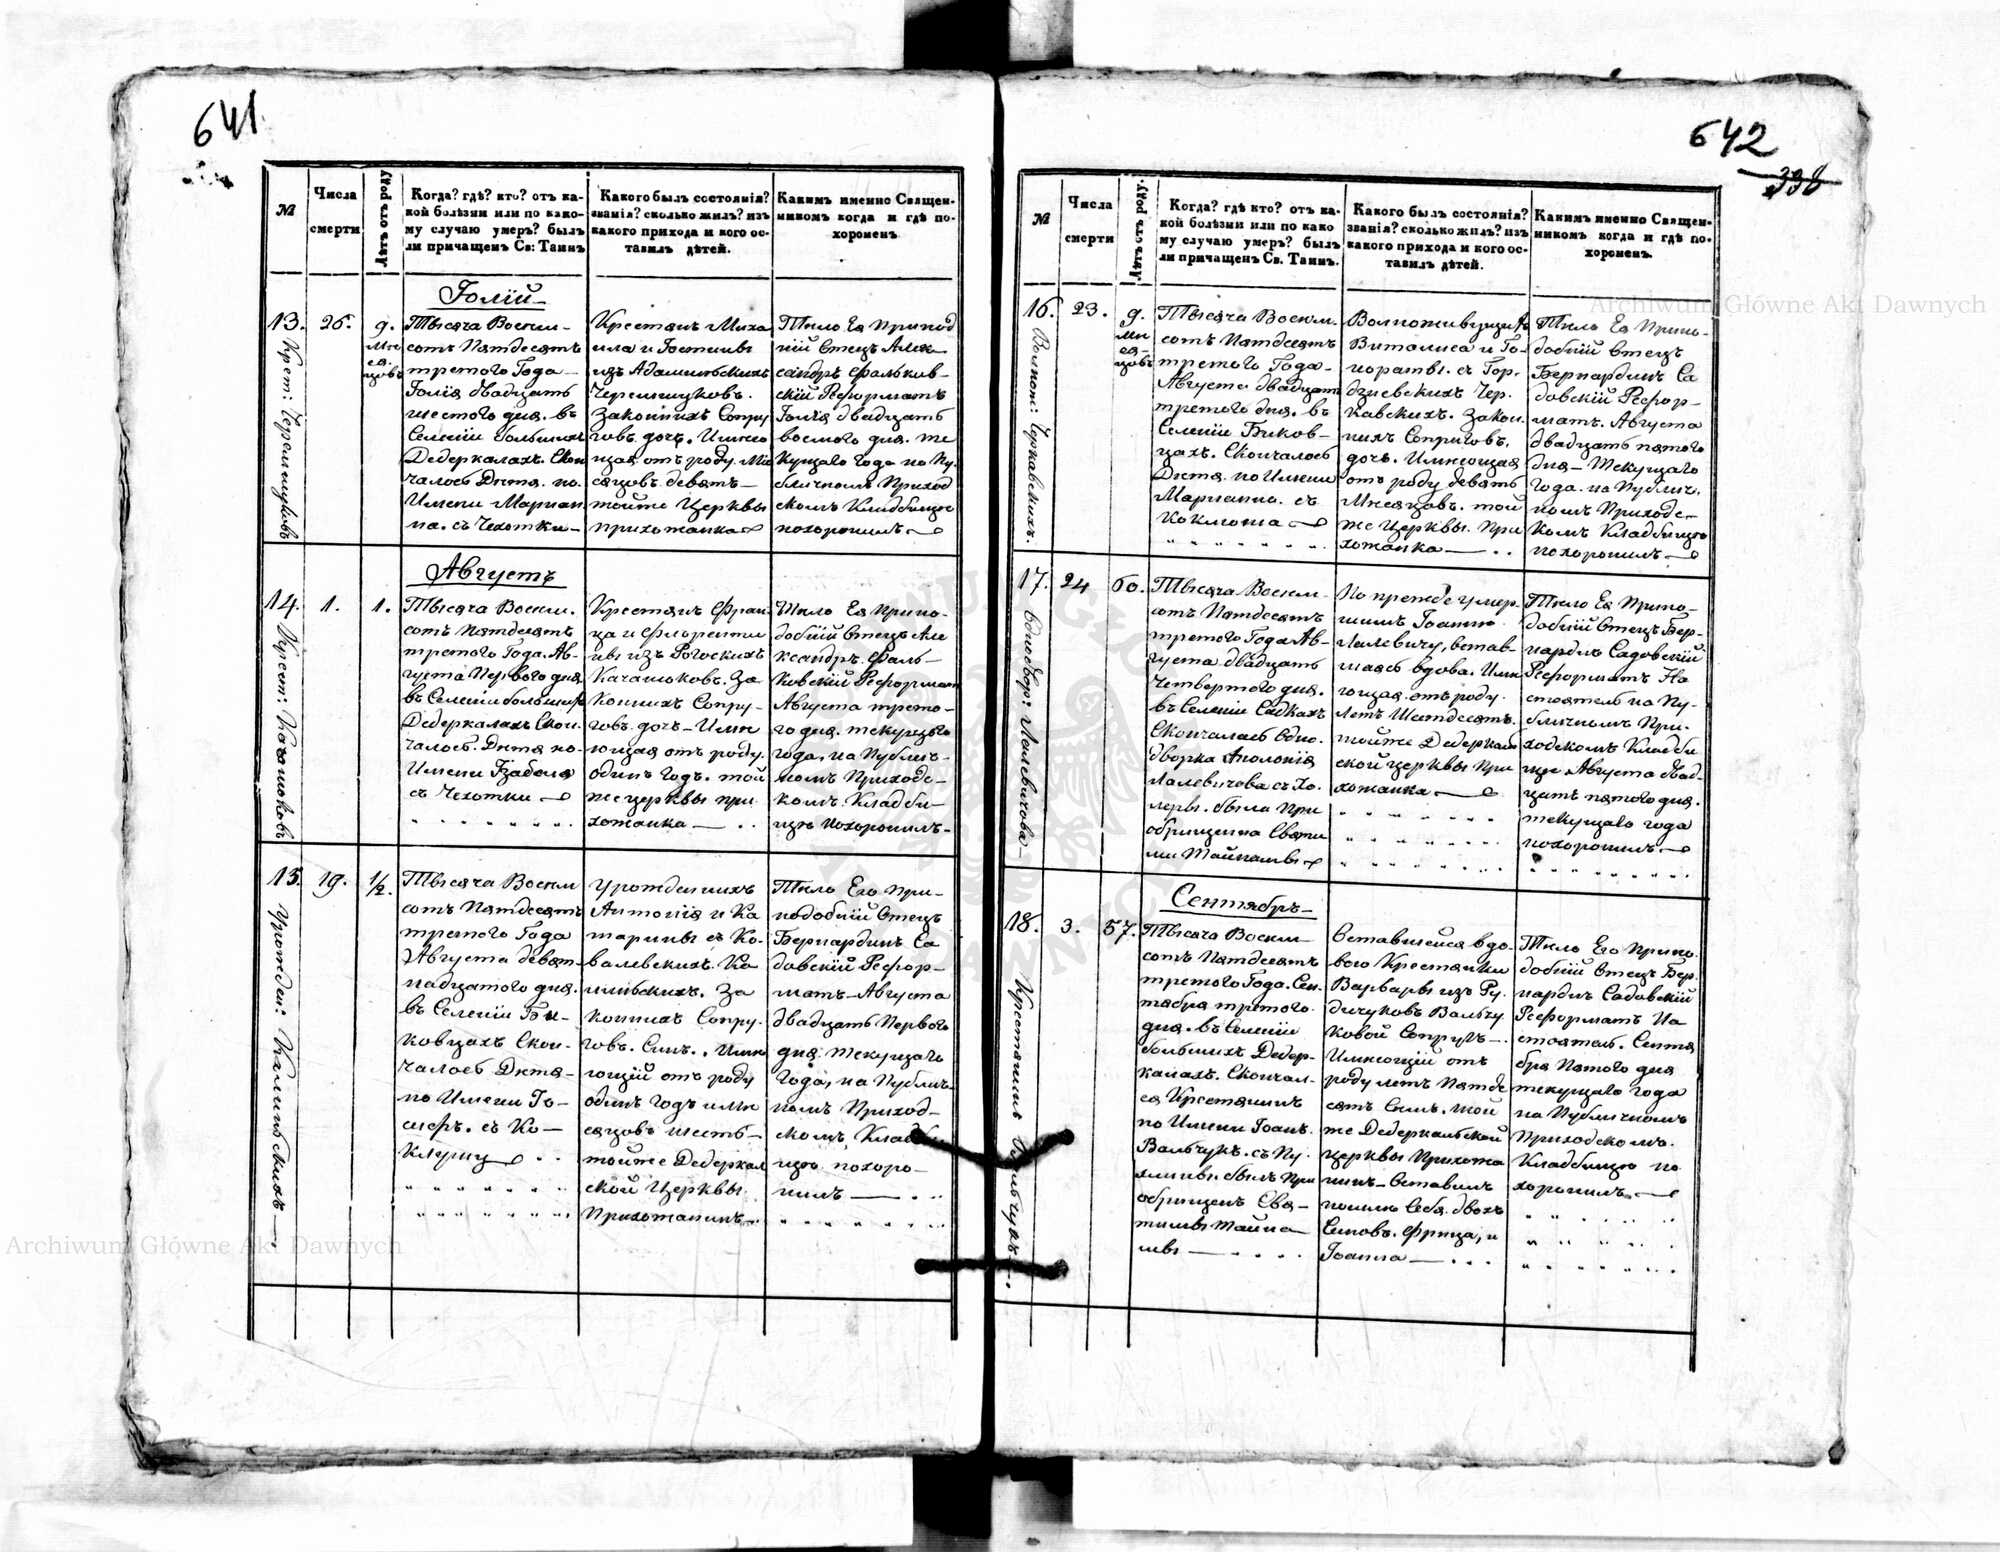 641
№
Числа
смерти
Лѣтъ отъ роду
Когда? гдѣ? кто? отъ ка-
кой болѣзни или по како-
му случаю умеръ? былъ
ли причащенъ Св: Таинъ
Какого былъ состоянія?
званія? сколько жилъ? изъ
какого прихода и кого ос-
тавилъ дѣтей.
Какимъ именно Священ-
никомъ когда и гдѣ по-
хороненъ
Іюлій
13. 26. 9.
Мѣ
ся-
цовъ
Крест: Черемшуковъ
Тысяча Восемь-
сотъ Пятдесятъ
третого Года
Іюлія двадцать
шестого дня. въ
Селеніи большихъ
Дедеркалахъ. Скон
чалось Дитя. по
Имени Мариан
на. съ Чехотки
Крестянъ Миха
ила и Юстины
изъ Адампольскихъ
Черемшуковъ.
Законныхъ Супру
говъ дочь. Имѣю
щая отъ роду Мѣ
сяцовъ девять
тойже Церквы
прихожанка
Тѣло Ея Препод
ній Отецъ Алек
сандръ Фальков-
скій Реформатъ
Іюлія двадцать
восмого дня. те
кущаго Года на Пу-
бличномъ Приход
скомъ Кладбищѣ
похоронилъ
Августъ
14. 1. 1.
Крест: Качанюковъ
Тысяча Восемь-
сотъ Пятдесятъ
третого Года. Ав-
густа Первого дня
въ Селеніи большихъ
Дедеркалахъ Скон-
чалось. Дитя по
Имени Изабеля
съ Чехотки
Крестянъ Фран
ца и Флорентин
ны изъ Рогоскихъ
Качанюковъ. За
конныхъ Супру-
говъ. дочь. Имѣ
ющая отъ роду
одинъ годъ. той
же церквы при
хожанка
Тѣло Ея Препо-
добній Отецъ Але
ксандръ. Фаль-
ковскій Реформатъ
Августа трето-
го дня. текущаго
года, на Публич-
номъ Приходс-
комъ. Кладби-
щѣ похоронилъ.
15. 19. 1/2.
Урожден: Калиньскихъ
Тысяча Восемь
сотъ Пятдесятъ
третого Года
Августа девят-
надцатого дня.
въ Селеніи Бы-
ковцахъ Скон-
чалось Дитя-
по Имени Іо-
сифъ. съ Ко-
клушу
Урожденныхъ
Антонія и Ка
тарины съ Ко-
валевскихъ. Ка
линьскихъ. За
конныхъ Супру-
говъ. Сынъ. Имѣ
ющій отъ роду
одинъ годъ и мѣ
сяцовъ шесть
тойже Дедеркал
ской Церквы
Прихожанинъ.
Тѣло Его Пре-
подобній Отецъ
Бернардинъ Са
довскій Рефор-
матъ Августа
двадцать Первого
дня. текущаго
года, на Публич-
номъ Приход-
скомъ. Кладби
щѣ похоро-
нилъ
642
338
№
Числа
смерти
Лѣтъ отъ роду.
Когда? гдѣ кто? отъ ка-
кой болѣзни или по како
му случаю умеръ? былъ
ли причащенъ Св. Таинъ.
Какого былъ состоянія?
званія? сколько жилъ? изъ
какого прихода и кого ос-
тавилъ дѣтей.
Какимъ именно Священ-
никомъ когда и гдѣ по-
хороненъ.
16. 23. 9.
Мѣ
ся-
цовъ
Волнож: Черкавскихъ.
Тысяча Восемь.
сотъ Пятдесятъ
третого Года
Августа двадцать
третого дня. въ
Селеніи Быков-
цахъ. Скончалось
Дитя. по Имени
Марианна. съ
коклюша
Волноживущихъ
Виталиса и Го-
нораты. съ Гор-
дзиевскихъ Чер-
кавскихъ. Закон
ныхъ Супруговъ.
дочь. Имѣющая
отъ роду девять
Мѣсяцовъ. той
же Церквы. При
хожанка
Тѣло Ея Препо-
добній Отецъ
Бернардинъ Са
довскій Рефор-
матъ. Августа
двадцать пятого
дня Текущаго
года. на Публич.
номъ Приходс-
комъ Кладбищѣ
похоронилъ
17. 24 60.
Однодвор: Лалевичова
Тысяча Восемь-
сотъ Пятдесятъ
третого Года Ав-
густа двадцать
четвертого дня.
въ Селеніи Садкахъ
Скончалась Одно-
дворка Аполонія
Лалевичова съ Хо-
леры. была При
общенна Святы
ми Тайнамы
По прежде умер-
шимъ Іоанне
Лалевичу, остав-
шаясь вдова. Имѣ
ющая отъ роду
Летъ Шестдесятъ.
тойже Дедеркал
ской церквы При
хожанка
Тѣло Ея Препо-
добній Отецъ Бер-
нардинъ Садовскій
Реформатъ На
стоятель на Пу-
бличномъ При-
ходскомъ Кладби
щѣ Августа двад-
цать пятого дня.
текущаго года
похоронилъ
Сентябръ
18. 3. 57.
Крестянинъ Вальчукъ
Тысяча Восемь
сотъ Пятдесятъ
третого Года. Сен-
тября третого
дня. въ Селеніи
большихъ Дедер-
калахъ. Скончал-
ся Крестянинъ
по Имени Іоанъ.
Вальчукъ. съ Пу-
хлины. былъ При
общенъ Свя-
тимы Тайна
мы
Оставшейся вдо-
вою Крестянки
Варвары изъ Ру-
дичуковъ Вальчу
ковой Супругъ.
Имѣющій отъ
роду летъ Пятде
сятъ Семъ. той
же Дедеркальской
церквы Прихожа
нинъ Оставилъ
помимо Себя. двохъ
Сыновъ. Франца, и
Іоанна
Тѣло Его Препо.
добній Отецъ Бер
нардинъ Садовскій
Реформатъ На
стоятель. Сентя
бра Пятого дня
текущаго года
на Публичномъ
Приходскомъ.
Кладбищѣ по
хоронилъ.
Archiwum Główne Akt Dawnych
Archiwum Główne Akt Dawnych